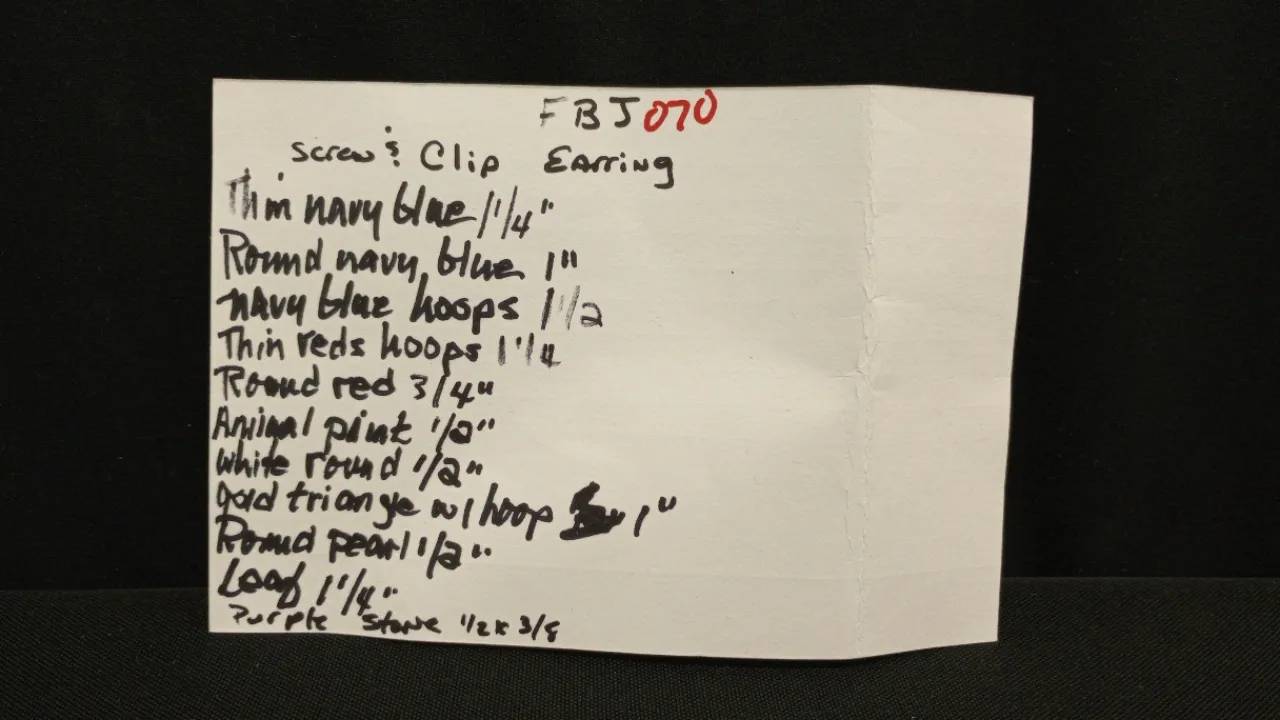 FBJ070
Screw & Clip Earring
Thin navy blue 1 1/4"
Round navy blue 1"
navy blue hoops 1 1/2
Thin reds hoops 1 1/4
Round red 3/4"
Animal print 1/2"
white round 1/2"
gold triangle w/ hoop 1"
Round pearl 1/2"
Leaf 1 1/4"
Purple Stone 1/2 x 3/8